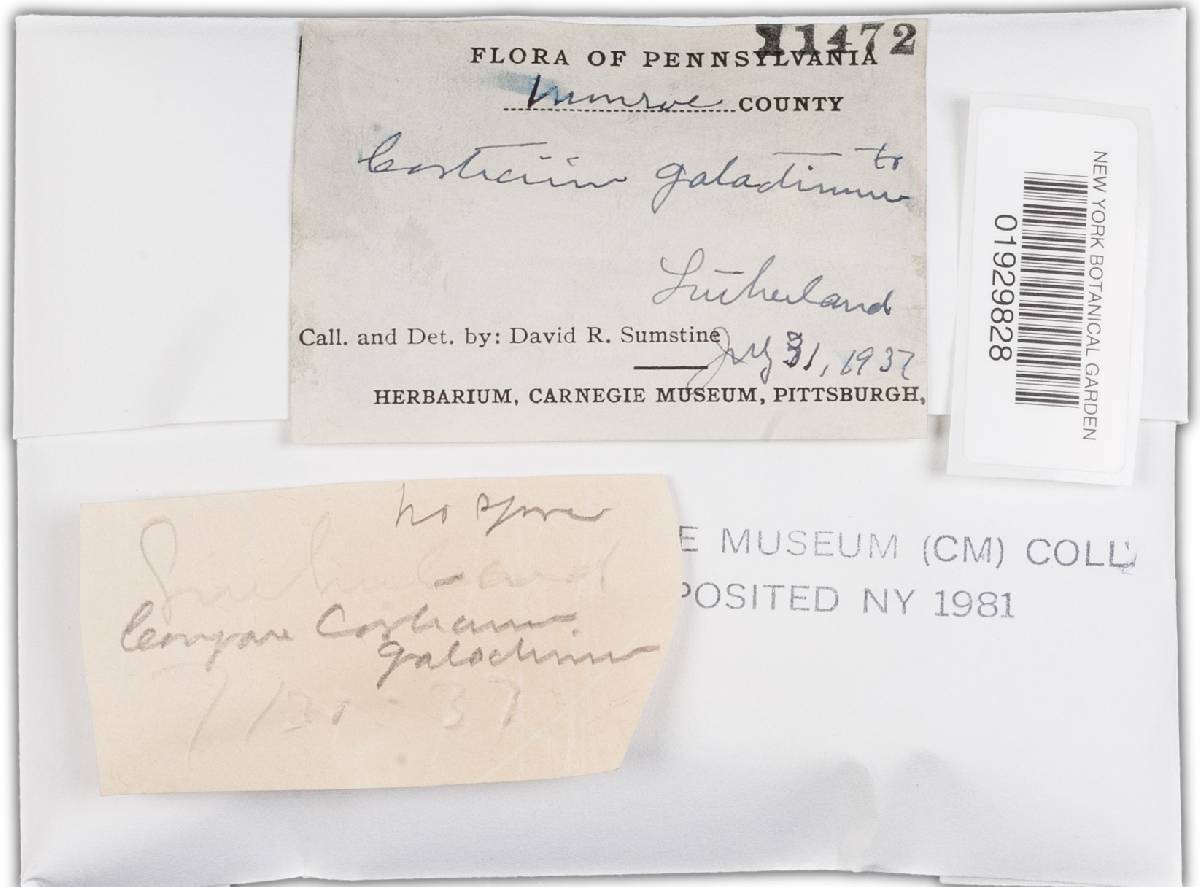 11472
FLORA OF PENNSYLVANIA
Monroe COUNTY
Corticium galactinum
Sutherland
Call. and Det. by: David R. Sumstine
July 31, 1937
HERBARIUM, CARNEGIE MUSEUM, PITTSBURGH,
NEW YORK BOTANICAL GARDEN
01929828
no spores
Sutherland
Compare Corticium
galactinum
7/31-37
E MUSEUM (CM) COLL
POSITED NY 1981